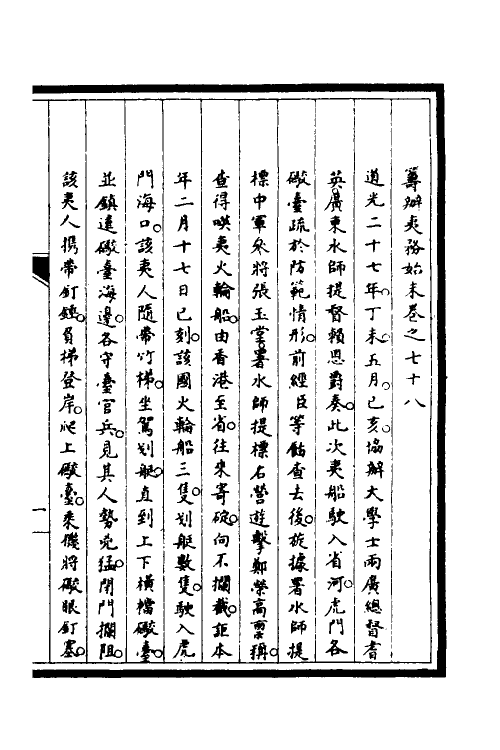 籌辦夷務始末卷之七十八
道光二十七年。丁未。五月。己亥。協辦大學士兩廣總督耆
英。廣東水師提督賴恩爵奏。此次夷船駛入省河。虎門各
礮臺疏於防範情形。前經臣等飭查去後。旋據署水師提
標中軍參將張玉堂。署水師提標右營遊擊鄭榮高稟稱。
查得暎夷火輪船。由香港至省。往來寄碇。向不攔截。詎本
年二月十七日巳刻。該國火輪船三隻。划艇數隻。駛入虎
門海口。該夷人隨帶竹梯。坐駕划艇。直到上下橫檔礮臺。
並鎮遠礮臺海邊。各守臺官兵。見其人勢兇猛。閉門攔阻。
該夷人攜帶釘鐃。負梯登岸。爬上礮臺。乘機將礮眼釘塞。
一